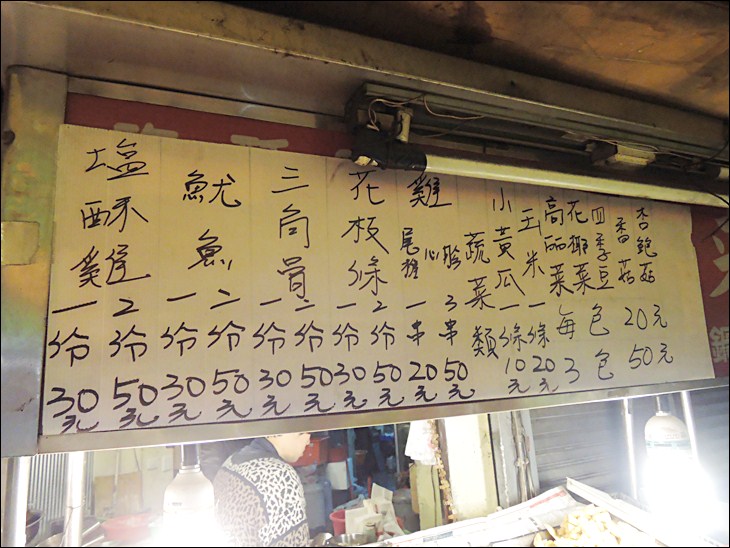 塩酥雞 一份30元 2份50元
魷魚 一份30元 二份50元
三角骨 一份30元 二份50元
花枝條 一份30元 2份50元
雞 尾椎 心 胗 一串20元 3串50元
蔬菜類
小黃瓜 一條10元
玉米 一條20元
高麗菜 花椰菜 四季豆 香菇 杏鮑菇
每包20元
3包50元